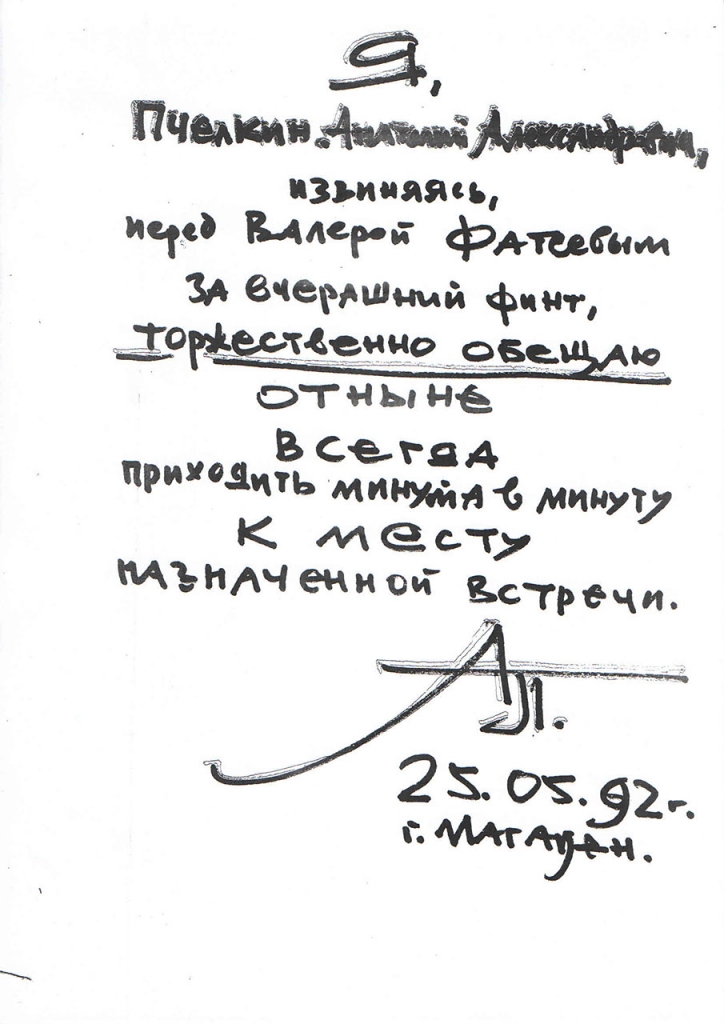 Я,
Пчелкин Анатолий Александрович,
извиняясь,
перед Валерой Фатеевым
за вчерашний финт,
торжественно обещаю
отныне
всегда
приходить минута в минуту
к месту
назначенной встречи.
АП.
25.05.92г.
г. Магадан.